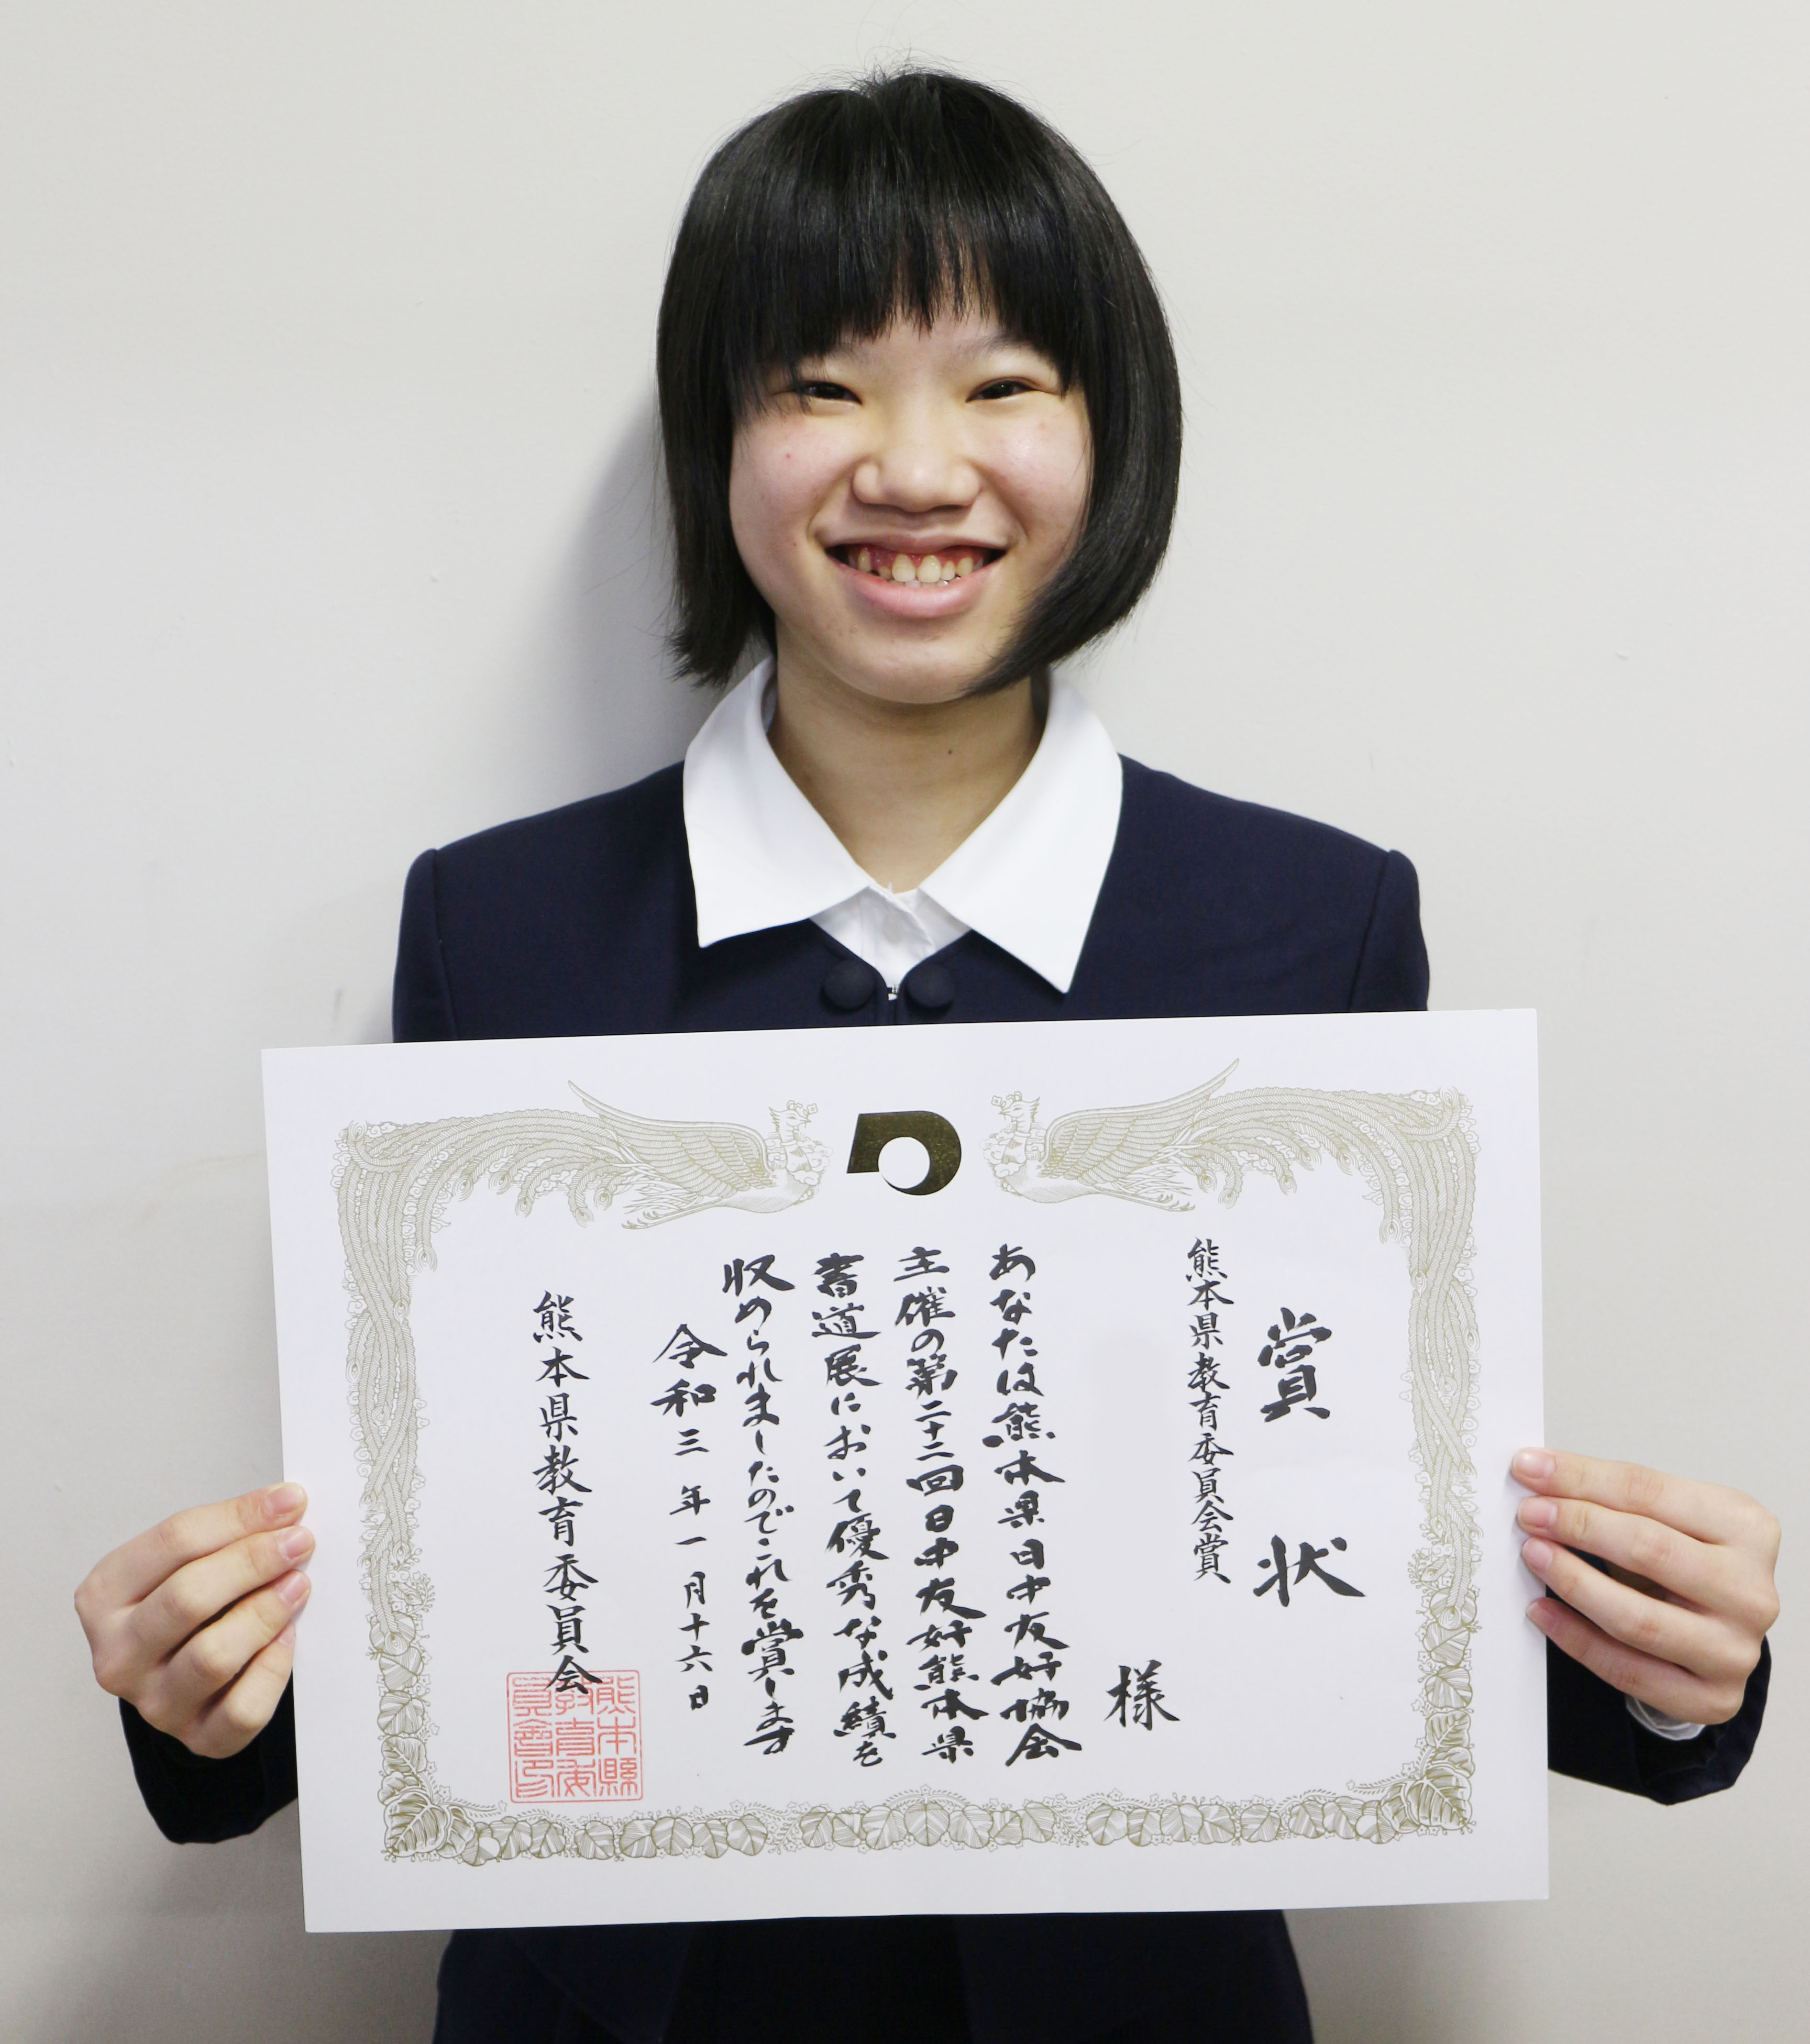 賞状
熊本県教育委員会賞
様
あなたは熊本県日中友好協会
主催の第二十二回日中友好熊本県
書道展において優秀な成績を
収められましたのでこれを賞します
令和三年一月十六日
熊本県教育委員会
熊本縣
教育委
員會印